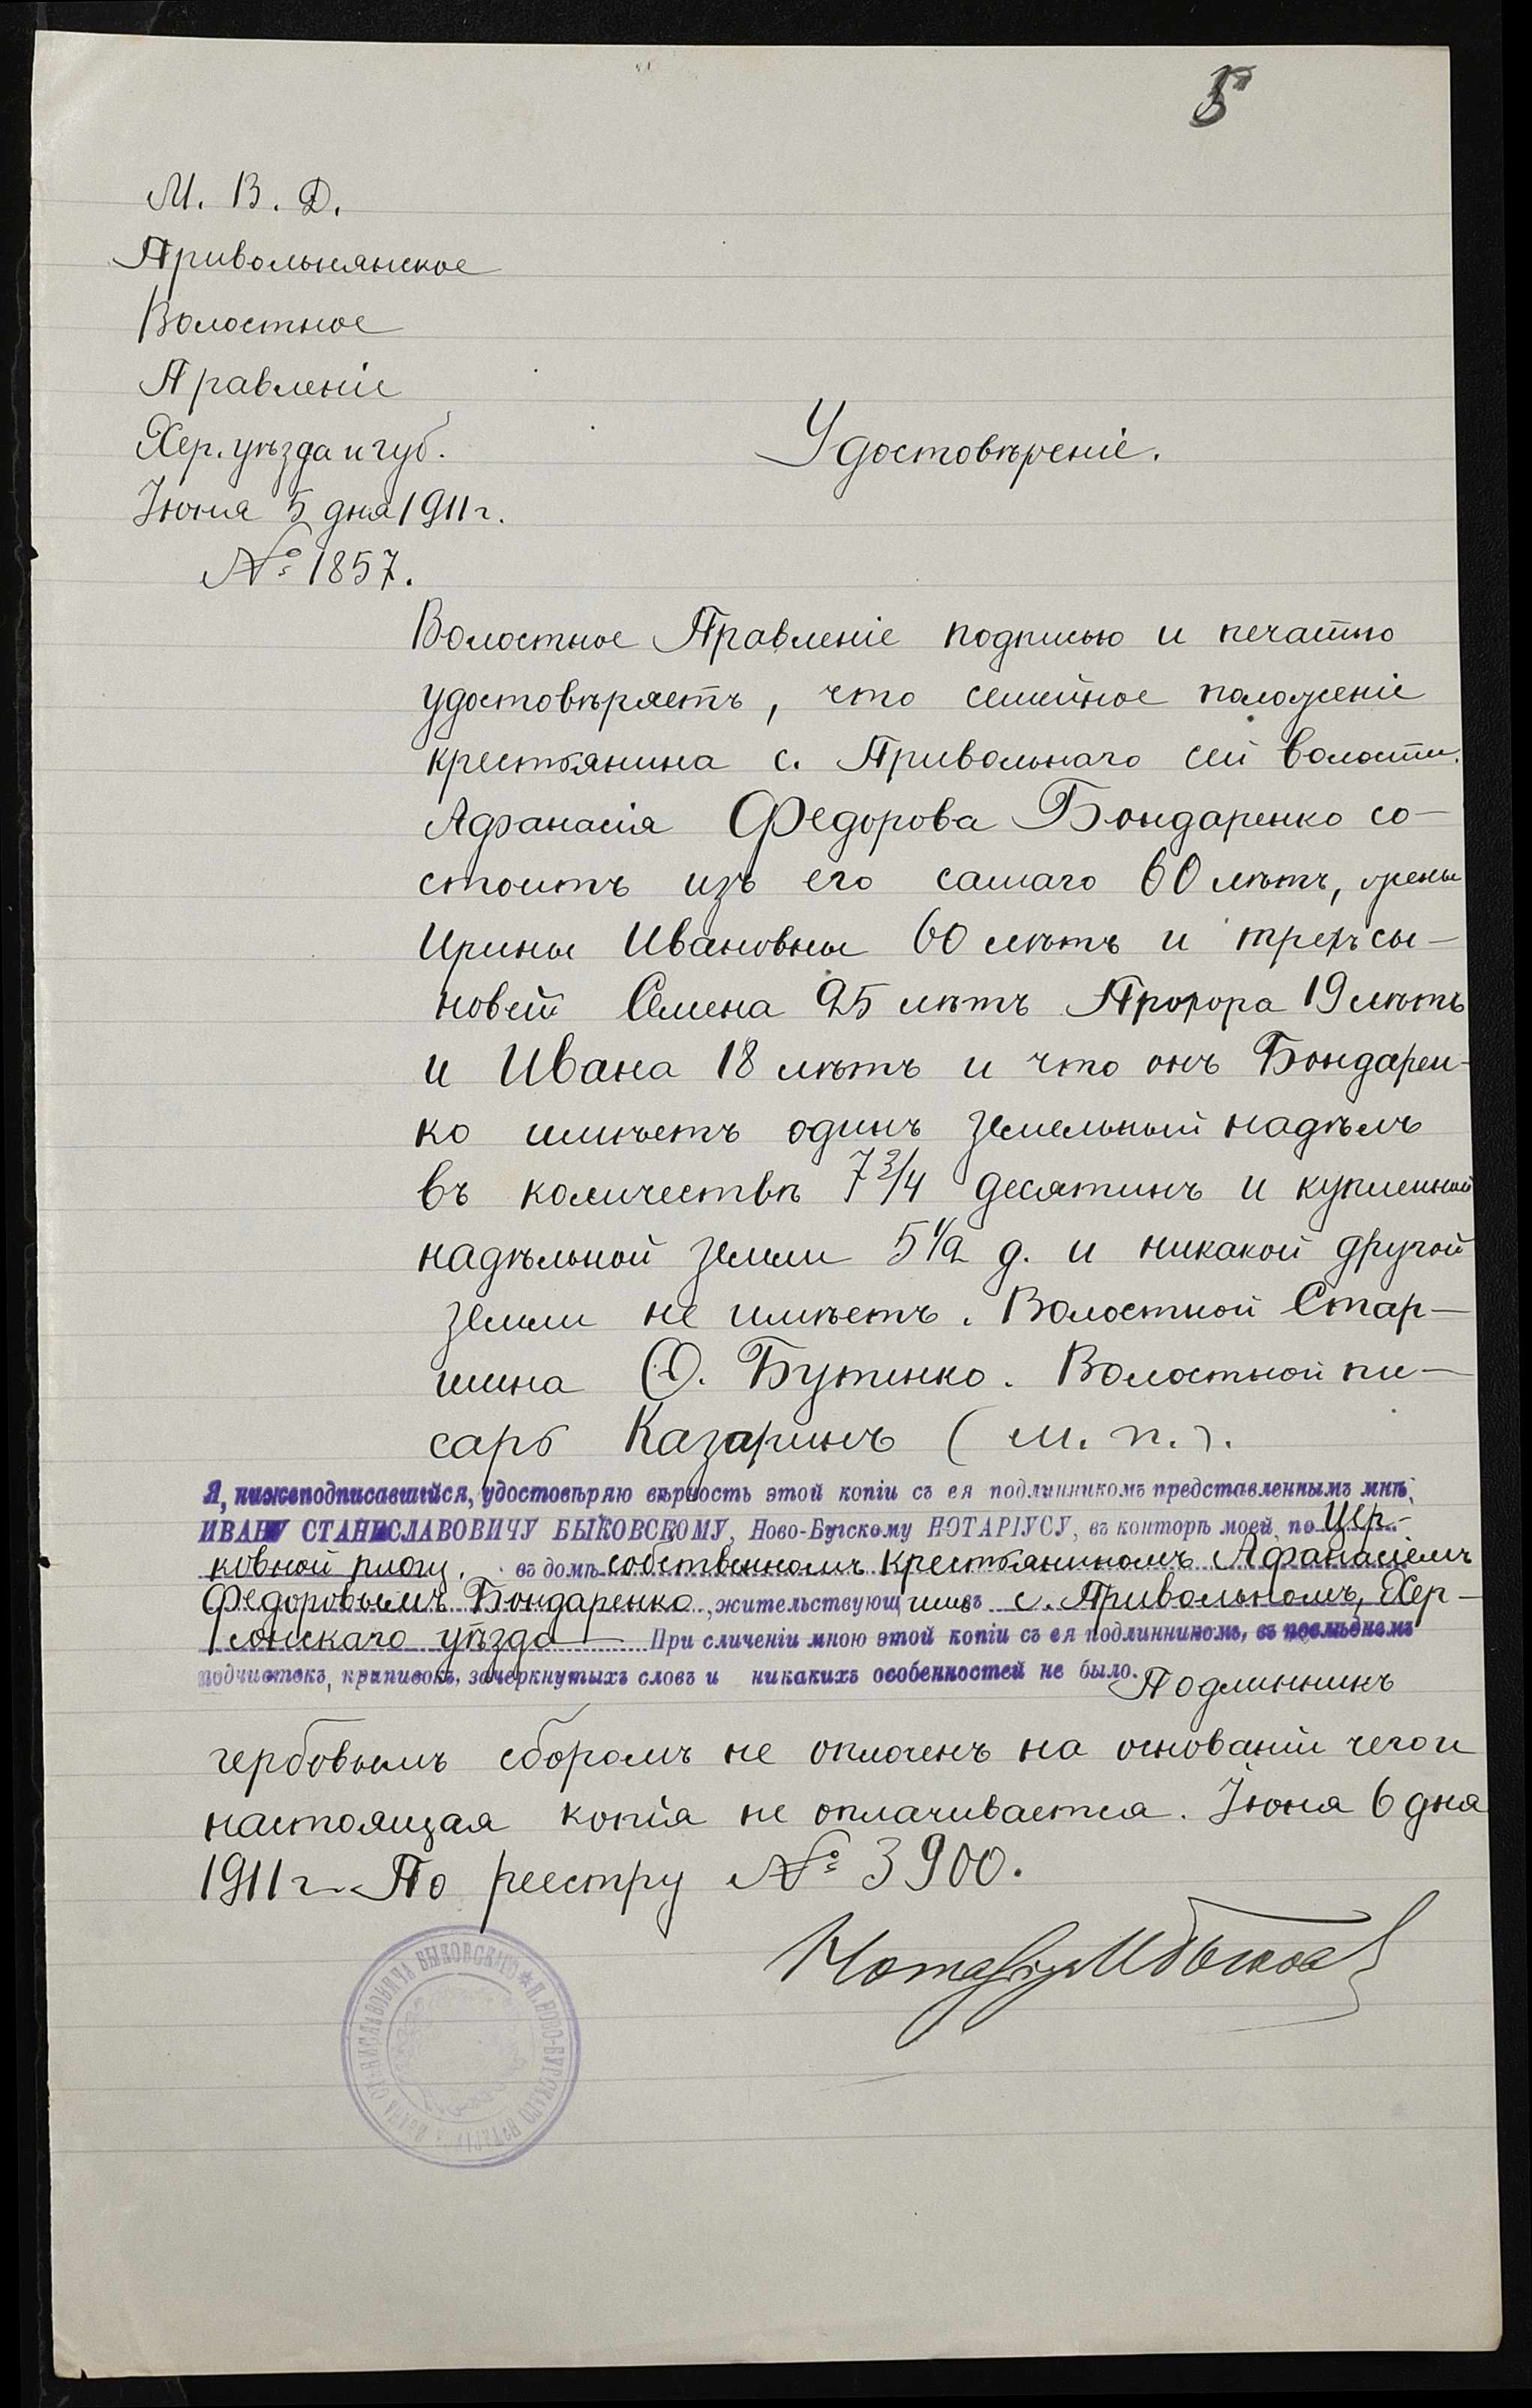 5
М. В. Д.
Привольнянское
Волостное
Правленіе
Хер. уѣзда и губ.
Іюня 5 дня 1911 г.
№ 1857.
Удостовѣреніе.
Волостное Правленіе подписью и печатью
удостовѣряетъ, что семейное положеніе
крестьянина с. Привольнаго сей волости
Афанасія Федорова Бондаренко со-
стоитъ изъ его самаго 60 лѣтъ, жены
Ирины Ивановны 60 лѣтъ и трехъ сы-
новей Семена 25 лѣтъ Прохора 19 лѣтъ
и Ивана 18 лѣтъ и что онъ Бондарен-
ко имѣетъ одинъ земельный надѣлъ
въ количествѣ 7 3/4 десятинъ и купленной
надѣльной земли 5 1/2 д. и никакой другой
земли не имѣетъ. Волостной Стар-
шина Ѳ. Бутенко. Волостной пи-
сарь Казаринъ (м. п.).
Я, нижеподписавшійся, удостовѣряю вѣрность этой копіи съ ея подлинникомъ представленнымъ мнѣ,
ИВАНУ СТАНИСЛАВОВИЧУ БЫКОВСКОМУ, Ново-Бугскому НОТАРІУСУ, въ конторѣ моей, по Цер-
ковной площ. въ домѣ собственномъ крестьяниномъ Афанасіемъ
Федоровымъ Бондаренко, жительствующимъ въ с. Привольномъ, Хер-
сонскаго уѣзда При сличеніи мною этой копіи съ ея подлинникомъ, въ послѣднемъ
подчистокъ, приписокъ, зачеркнутыхъ словъ и никакихъ особенностей не было. Подлинникъ
гербовымъ сборомъ не оплоченъ на основаніи чего и
настоящая копія не оплачивается. Іюня 6 дня
1911 г. По реестру № 3900.
Нотаріусъ